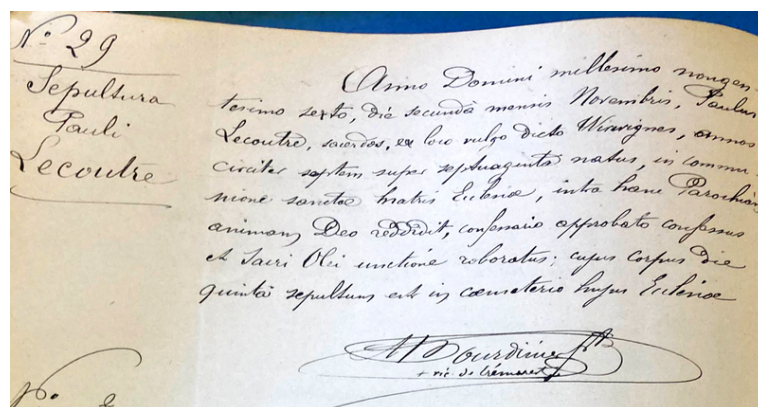 N.º 29
Sepultura
Pauli
Lecoutre
Anno Domini millesimo nongen-
tesimo sexto, die secunda mensis Novembris, Paulus
Lecoutre, sacerdos, ex loco vulgo dicto Wirwignes, annos
circiter septem super septuaginta natus, in commu-
nione sanctæ matris Ecclesiæ, intra hanc Parochiam
animam Deo reddidit, confessario approbato confessus
et Sacri Olei unctione roboratus; cujus corpus die
quintâ sepultum est in cœmeterio hujus Ecclesiæ
vic. de Crémarest
N.º